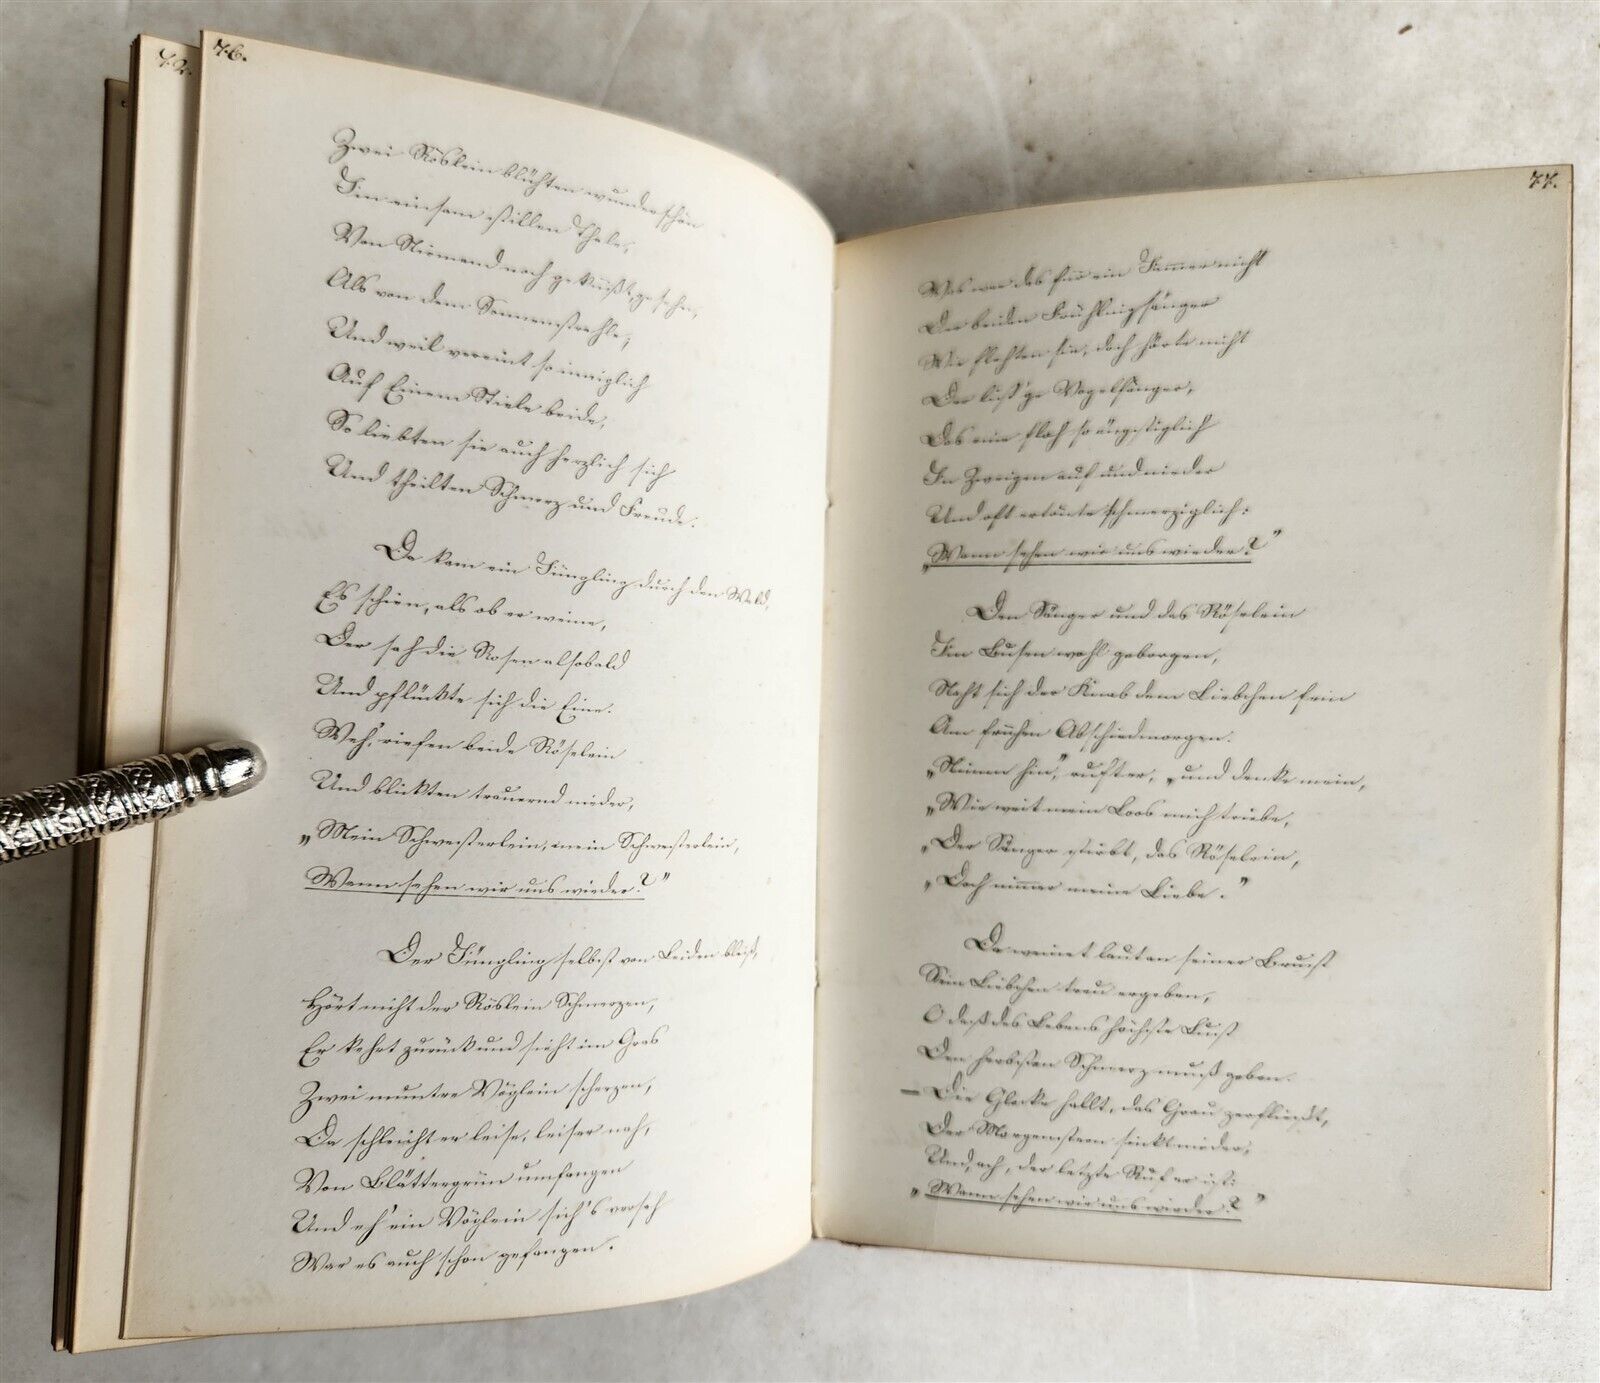 76.
Zwei Röslein blühten wunderschön
Im einsam stillen Thale,
Von Niemand noch geküßt, gesehn,
Als von dem Sonnenstrahle;
Und weil vereint so inniglich
Auf Einem Stiele beide,
So liebten sie auch herzlich sich
Und theilten Schmerz und Freude.
Da kam ein Jüngling durch den Wald,
Es schien, als ob er weine,
Der sah die Rosen alsobald
Und pflückte sich die Eine.
Weh', riefen beide Röselein
Und blickten trauernd nieder,
„Mein Schwesterlein, mein Schwesterlein,
Wann sehen wir uns wieder?"
Der Jüngling selbst von Leiden blaß,
Hört nicht der Röslein Schmerzen,
Er kehrt zurück und sieht im Gras
Zwei muntre Vöglein scherzen,
Da schleicht er leise, leiser nah,
Von Blättergrün umfangen
Und eh' ein Vöglein sich's versah
War es auch schon gefangen.
77.
Was war das für ein Jammer nicht
Der beiden Frühlingssänger
Wie flehten sie, doch hörte nicht
Der list'ge Vogelfänger,
Das eine floh so ängstiglich
In Zweigen auf und nieder
Und oft ertönte schmerziglich:
„Wann sehen wir uns wieder?"
Den Sänger und das Röselein
Im Busen wohl geborgen,
Naht sich der Knab dem Liebchen fein
Am frühen Abschiedmorgen.
„Nimm hin", ruft er, „und denke mein,
„Wie weit mein Loos mich triebe,
„Der Sänger stirbt, das Röselein,
„Doch nimmer meine Liebe."
Da weinet laut an seiner Brust
Sein Liebchen treu ergeben,
O daß des Lebens höchste Lust
Den herbsten Schmerz muß geben.
– Die Glocke hallt, das Grau zerfließt,
Der Morgenstern sinkt nieder,
Und, ach, der letzte Ruf er ist:
„Wann sehen wir uns wieder?"